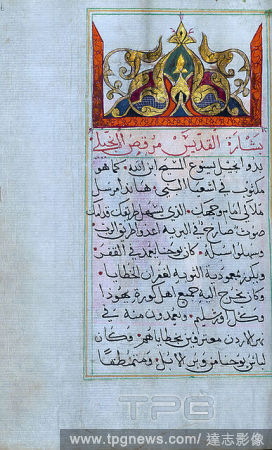 بشارة القديس مرقص
بدو انجيل يسوع المسيح ابن الله • كما هو
مكتوب في اشعيا النبي • هاندا مرسل
ملاكي امام وجهك • الذي يسهل طريقك قدامك
صوت صارخ في البرية اعدوا طريق الرب
وسهلوا سبله • كان يوحنا يعمد في القفر
ويكرز معمودية التوبة لغفران الخطايا •
وكان يخرج اليه جميع اهل كورة يهودا
وكل اورشليم • ويعتمدون منه في
نهر الاردن معترفين بخطاياهم • وكان
لباس يوحنا من وبر الابل ومتمنطقا
TPG
www.tpgnews.com/達志影像